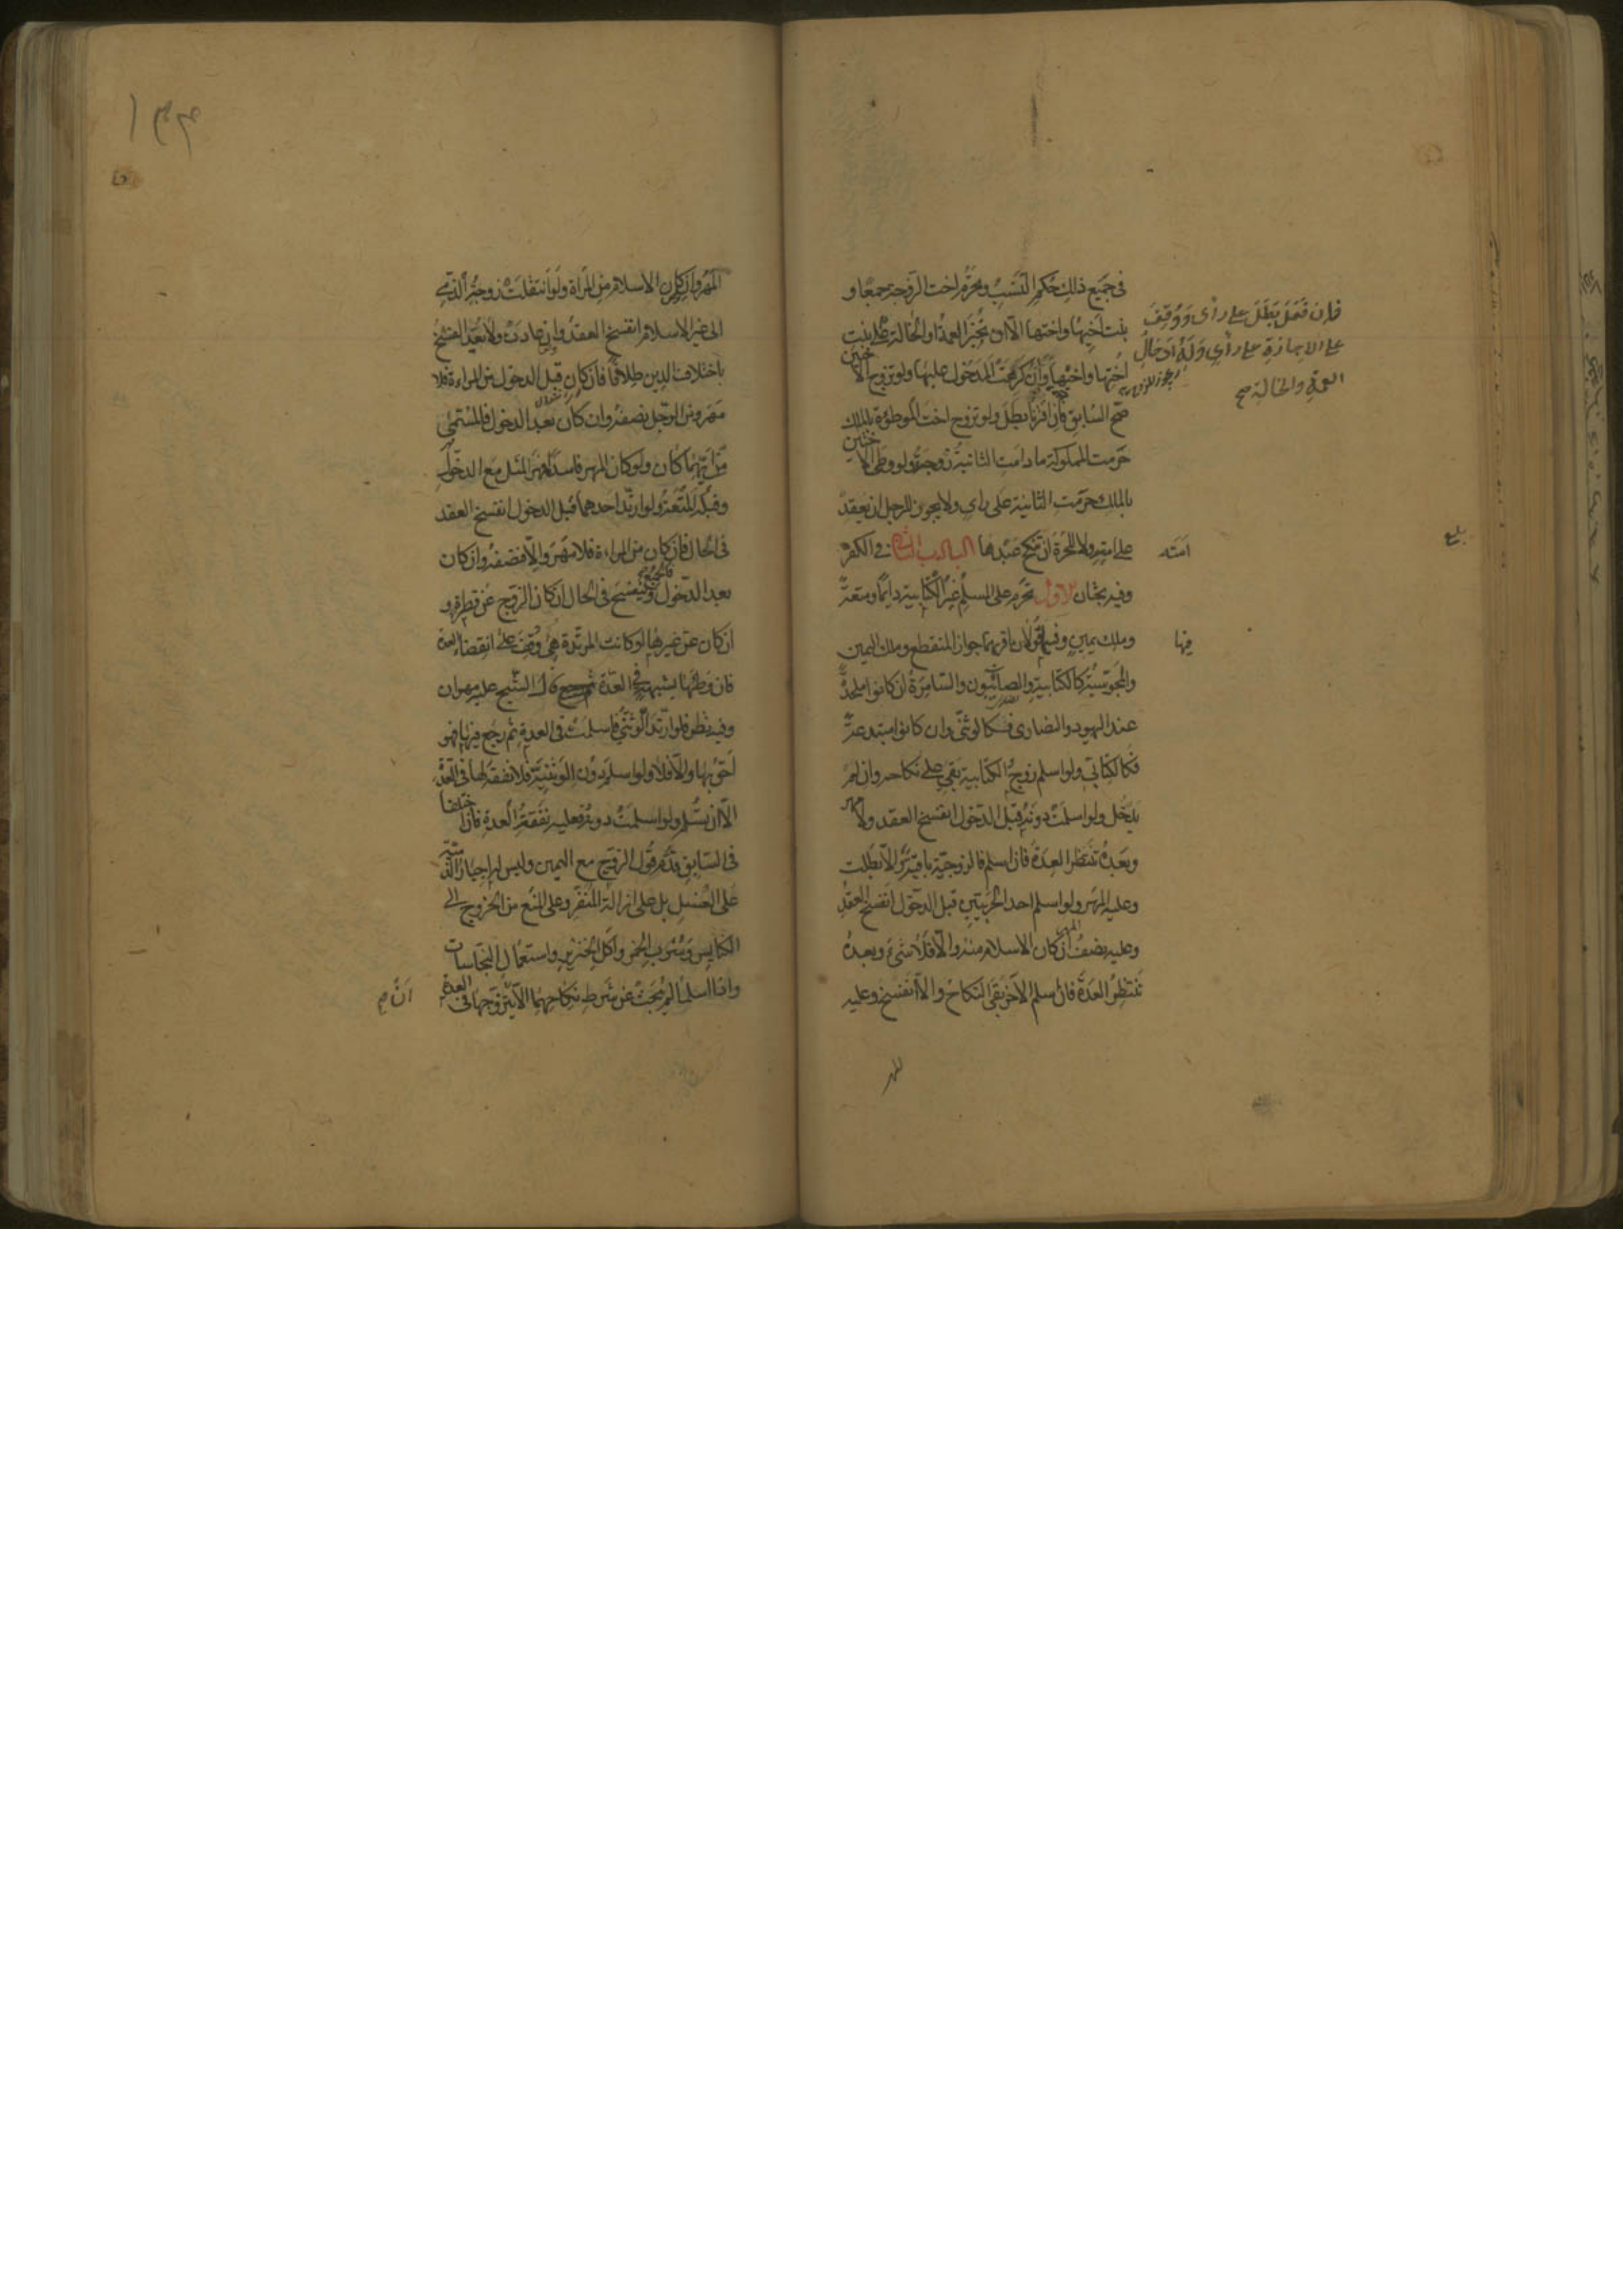 فى جميع ذلك حكم النسب ويحرم اخت الزوجة جمعا و
بنت اخيها واختها الا ان تجيز العمة او الخالة ولها بنت
اختها واخيها وان كرهت المدخول عليها ولو تزوج الاختين
صح السابق فان اقترنا بطل ولو تزوج اخت الموطوءة بالملك
حرمت المملوكة ما دامت الثانية زوجة ولو وطى الاختين
بالملك حرمت الثانية على راى ولا يجوز للرجل ان يعقد
على امته ولا للحرة ان تنكح عبدها الباب فى الكفر
وفيه بحثان الاول يحرم على المسلم غير الكتابية دايما ومتعة
وملك يمين وفيها قولان اقربهما جواز المنقطع وملك اليمين
والمجوسية كالكتابية والصابئون والسامرة ان كانوا ملحدة
عند اليهود والنصارى فكالوثنى وان كانوا مبتدعة
فكالكتابى ولو اسلم زوج الكتابية بقى على نكاحه وان لم
يدخل ولو اسلمت دونه قبل الدخول انفسخ العقد ولا مهر
وبعده تنتظر العدة فان اسلم فالزوجية باقية والا بطلت
وعليه المهر ولو اسلم احد الحربيين قبل الدخول انفسخ العقد
وعليه نصف المهر ان كان الاسلام منه والا فلا شىء وبعده
تنتظر العدة فان اسلم الاخر بقى النكاح والا انفسخ وعليه
المهر
فان فعل بطل على راى ووقف
على الاجازة على راى وله ادخال
العمة والخالة صح
امته
فيها
بلغ
المهر وان كان الاسلام من المراة ولو انتقلت زوجة الذمى
الى غير الاسلام انفسخ العقد وان عادت ولا يعد الفسخ
باختلاف الدين طلاقا فان كان قبل الدخول من المراءة فلا
مهر ومن الرجل نصفه وان كان بعد الدخول فالمسمى
من ايهما كان ولو كان المهر فاسدا فمهر المثل مع الدخول
وقبله المتعة ولو ارتد احدهما قبل الدخول انفسخ العقد
فى الحال فان كان من المراءة فلا مهر والا فنصفه وان كان
بعد الدخول فالجميع وينفسخ فى الحال ان كان الزوج عن فطرة و
ان كان عن غيرها او كانت المرتدة هى وقف على انقضاء العدة
فان وطئها بشبهة فى العدة ثم رجع قال الشيخ عليه مهران
وفيه نظر فلو ارتد الوثنى فاسلمت فى العدة ثم رجع فيها فهو
احق بها والا فلا ولو اسلم دون الوثنية فلا نفقة لها فى العدة
الا ان تسلم ولو اسلمت دونه فعليه نفقة العدة فان اختلفا
فى السابق قدم قول الزوج مع اليمين وليس له اجبار الذمية
على الغسل بل على ازالة المنفر وعلى المنع من الخروج الى
الكنايس وشرب الخمر واكل الخنزير واستعمال النجاسات
واذا اسلما لم يبحث عن شرط نكاحهما الا ان تزوجها فى العدة